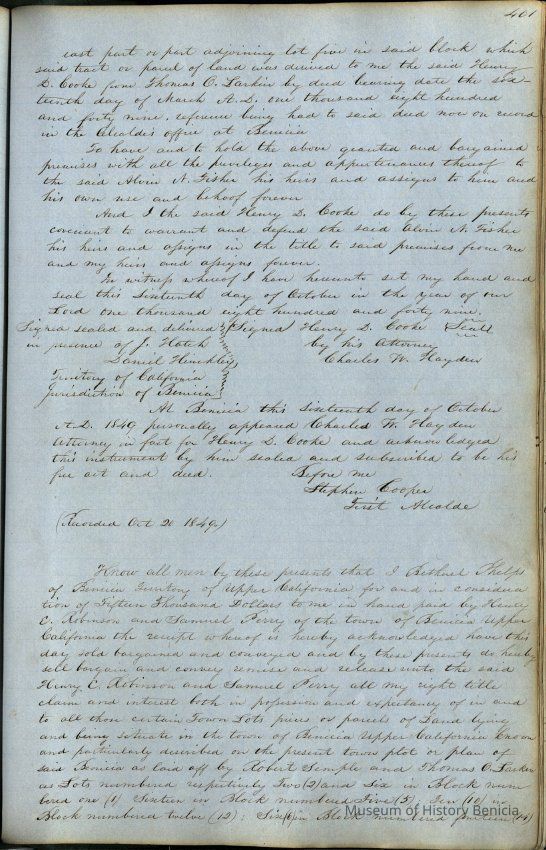 401
east part or part adjoining lot five in said block which
said tract or parcel of land was deeded to me the said Henry
D. Cooke from Thomas O. Larkin by deed bearing date the six-
teenth day of March A.D. one thousand eight hundred
and forty nine, reference being had to said deed now on record
in the Alcaldes office at Benicia
To have and to hold the above granted and bargained
premises with all the privileges and appurtenances thereof to
the said Alvin N. Fisher his heirs and assigns to him and
his own use and behoof forever
And I the said Henry D. Cooke do by these presents
covenant to warrant and defend the said Alvin N. Fisher
his heirs and assigns in the title to said premises from me
and my heirs and assigns forever.
In witness whereof I have hereunto set my hand and
seal this Sixteenth day of October in the year of our
Lord one thousand eight hundred and forty nine,
Signed sealed and delivered Signed Henry D. Cooke Seals
in presence of J. Hatch by his Attorney
Daniel Hinckley Charles W. Hayden
Territory of California
Jurisdiction of Benicia
At Benicia this Sixteenth day of October
A.D. 1849 personally appeared Charles W. Hayden
Attorney in fact for Henry D. Cooke and acknowledged
this instrument by him sealed and subscribed to be his
free act and deed. Before me
Stephen Cooper
First Alcalde
(Recorded Oct 20 1849)
Know all men by these presents that I Bethuel Phelps
of Benicia Territory of Upper California for and in considera
tion of Fifteen Thousand Dollars to me in hand paid by Henry
E. Robinson and Samuel Perry of the town of Benicia Upper
California the receipt whereof is hereby acknowledged have this
day sold bargained and conveyed and by these presents do hereby
sell bargain and convey remise and release unto the said
Henry E. Robinson and Samuel Perry all my right title
claim and interest both in possession and expectancy of in and
to all those certain Town Lots pieces or parcels of Land lying
and being situate in the town of Benicia Upper California Known
and particularly described on the present town plot or plan of
said Benicia as laid off by Robert Semple and Thomas O. Larkin
as Lots numbered respectively Two (2) and Six in Block num
bered one (1) Sixteen in Block numbered Five (5) Ten (10) in
Block numbered twelve (12): Six (6) in Block numbered fourteen (14)
Museum of History Benicia